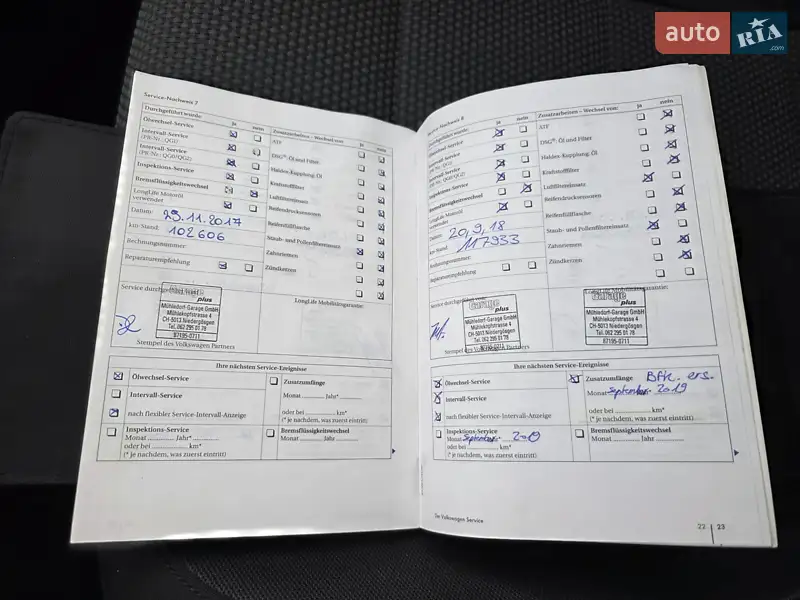 auto RIA.com
Service-Nachweis 7
Durchgeführt wurde: ja nein
Zusatzarbeiten – Wechsel von: ja nein
Ölwechsel-Service
ATF
Intervall-Service
(PR-Nr.: QG1)
DSG®: Öl und Filter
Intervall-Service
(PR-Nr.: QG0/QG2)
Haldex-Kupplung: Öl
Inspektions-Service
Kraftstofffilter
Bremsflüssigkeitswechsel
Luftfiltereinsatz
LongLife Motoröl
verwendet
Reifendrucksensoren
Datum: 29.11.2017
Reifenfüllflasche
km-Stand: 102606
Staub- und Pollenfiltereinsatz
Rechnungsnummer:
Zahnriemen
Reparaturempfehlung
Zündkerzen
Service durchgeführt von:
LongLife Mobilitätsgarantie:
Garage plus
Mühledorf-Garage GmbH
Mühlekopfstrasse 4
CH-5013 Niedergösgen
Tel. 062 295 01 78
87195-0711
Stempel des Volkswagen Partners
Ihre nächsten Service-Ereignisse
Ölwechsel-Service
Zusatzumfänge
Intervall-Service
Monat Jahr*
nach flexibler Service-Intervall-Anzeige
oder bei km*
(* je nachdem, was zuerst eintritt)
Inspektions-Service
Monat Jahr*
oder bei km*
(* je nachdem, was zuerst eintritt)
Bremsflüssigkeitswechsel
Monat Jahr
Service-Nachweis 8
Durchgeführt wurde: ja nein
Zusatzarbeiten – Wechsel von: ja nein
Ölwechsel-Service
ATF
Intervall-Service
(PR-Nr.: QG1)
DSG®: Öl und Filter
Intervall-Service
(PR-Nr.: QG0/QG2)
Haldex-Kupplung: Öl
Inspektions-Service
Kraftstofffilter
Bremsflüssigkeitswechsel
Luftfiltereinsatz
LongLife Motoröl
verwendet
Reifendrucksensoren
Datum: 20.9.18
Reifenfüllflasche
km-Stand: 117933
Staub- und Pollenfiltereinsatz
Rechnungsnummer:
Zahnriemen
Reparaturempfehlung
Zündkerzen
Service durchgeführt von:
LongLife Mobilitätsgarantie:
Garage plus
Mühledorf-Garage GmbH
Mühlekopfstrasse 4
CH-5013 Niedergösgen
Tel. 062 295 01 78
87195-0711
Garage plus
Mühledorf-Garage GmbH
Mühlekopfstrasse 4
CH-5013 Niedergösgen
Tel. 062 295 01 78
87195-0711
Stempel des Volkswagen Partners
Ihre nächsten Service-Ereignisse
Ölwechsel-Service
Zusatzumfänge
Intervall-Service
Monat September 2019
nach flexibler Service-Intervall-Anzeige
oder bei km*
(* je nachdem, was zuerst eintritt)
Inspektions-Service
Monat September 2019
oder bei km*
(* je nachdem, was zuerst eintritt)
Bremsflüssigkeitswechsel
Monat Jahr
Ihr Volkswagen Service
22 | 23